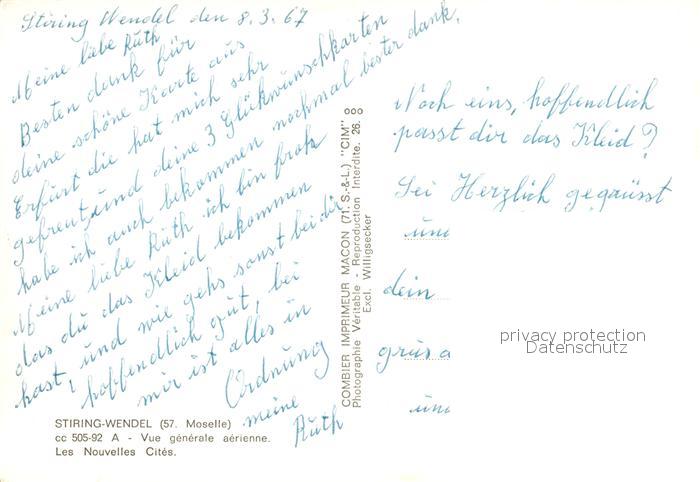 Stiring Wendel den 8.3.67
Meine liebe Ruth
Besten dank für
deine schöne Karte aus
Erfurt die hat mich sehr
gefreut, und deine 3 Glükwunschkarten
habe ich auch bekommen nochmal bester dank.
Meine liebe Ruth ich bin froh
das du das Kleid bekommen
hast, und wie gehs sonst bei dir
hoffendlich gut, bei
mir ist alles in
Ordnung
meine
Ruth
STIRING-WENDEL (57. Moselle)
cc 505-92 A - Vue générale aérienne.
Les Nouvelles Cités.
COMBIER IMPRIMEUR MACON (71, S.-&-L.) "CIM" ooo
Photographie Véritable - Reproduction Interdite. 26.
Excl. Willigsecker
Noch eins, hoffendlich
passt dir das Kleid?
Sei Herzlich gegrüsst
und
dein
und
privacy protection
Datenschutz